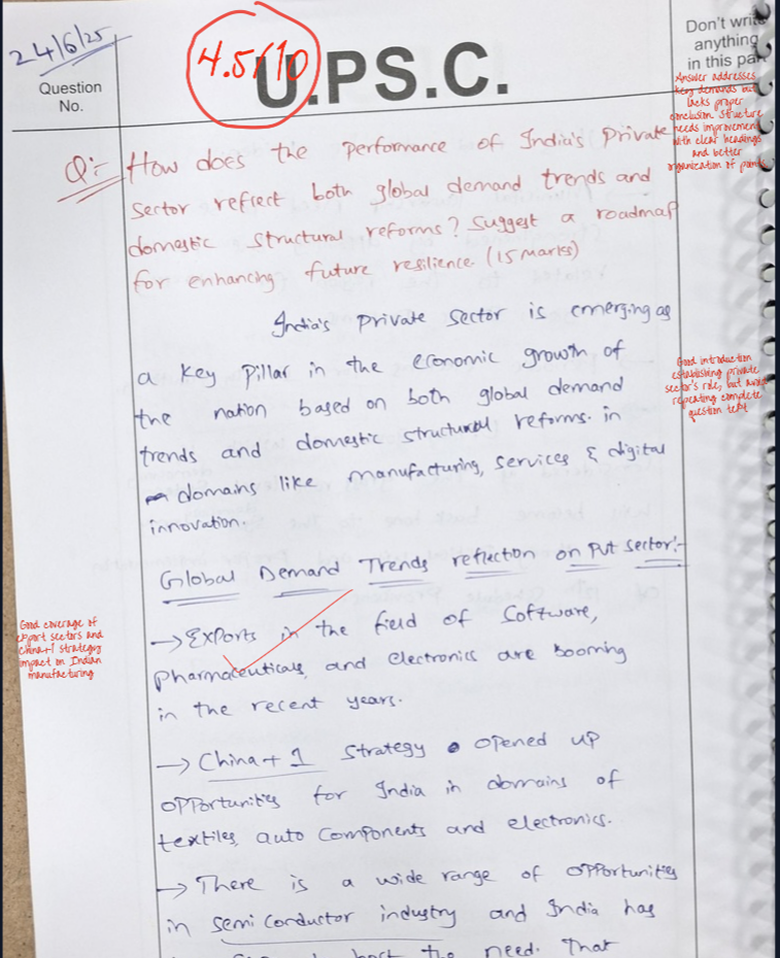 24/6/25
4.5/10
U.P.S.C.
Question
No.
Don't write
anything
in this par
Answer addresses
key demands but
lacks proper
conclusion. Structure
needs improvement
with clear headings
and better
organization of points
Q:- How does the performance of India's Private
sector reflect both global demand trends and
domestic structural reforms? Suggest a roadmap
for enhancing future resilience. (15 Marks)
India's Private sector is emerging as
a key Pillar in the economic growth of
the nation based on both global demand
trends and domestic structural reforms. in
domains like manufacturing, services & digital
innovation.
Good introduction
establishing private
sector's role, but avoid
repeating complete
question text
Global Demand Trends reflection on Pvt Sector:-
→ Exports in the field of Software,
Pharmaceuticals, and electronics are booming
in the recent years.
Good coverage of
export sectors and
China+1 strategy
impact on Indian
manufacturing
→ China + 1 Strategy opened up
opportunities for India in domains of
textiles, auto components and electronics.
→ There is a wide range of opportunities
in semi conductor industry and India has
the need. That